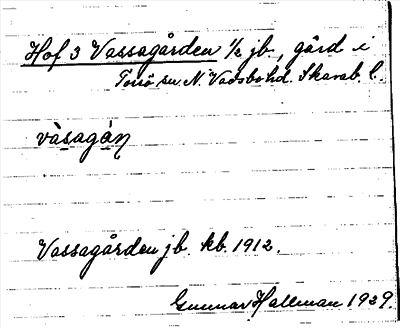 Hof 3 Vassagården 1/2 jb., gård i
Torsö sn. N. Vadsbo hd. Skarab. l.
vàsagáŋ
Vassagården jb. kb. 1912.
Gunnar Hallman 1929.